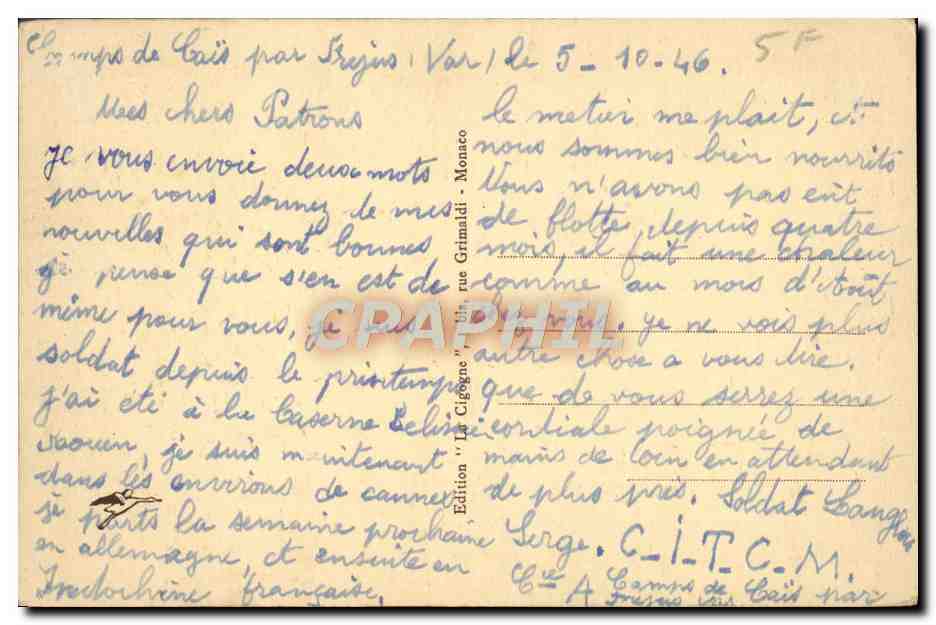 Camps de Caïs par Frejus (Var) le 5-10-46.
5F
Mes chers Patrons
je vous envoie deux mots
pour vous donnez de mes
nouvelles qui sont bonnes
je pense que s'en est de
même pour vous, je suis
soldat depuis le printemps
j'ai été à la Caserne
je suis maintenant
dans les environs de cannes
je parts la semaine prochaine
en allemagne, et ensuite en
Indochine française.
le metier me plait, et
nous sommes bien nourrits
Nous n'avons pas eût
de flotte, depuis quatre
mois, il fait une chaleur
comme au mois d'Août
chez vous. je ne vois plus
autre chose a vous dire.
que de vous serrez une
cordiale poignée de
mains de loin en attendant
de plus près. Soldat Langlois
Serge. C-I-T-C-M.
Cie A Camps de
Caïs par
Edition "La Cigogne", bis, rue Grimaldi - Monaco
CPARPHIL